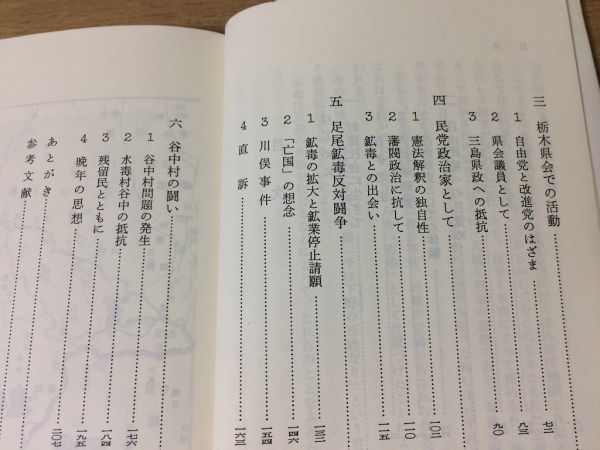 三 栃木県会での活動
1 自由党と改進党のはざま 七二
2 県会議員として 八三
3 三島県政への抵抗 九〇
四 民党政治家として
1 憲法解釈の独自性 一〇二
2 藩閥政治に抗して 一一〇
3 鉱毒との出会い 一一五
五 足尾鉱毒反対闘争
1 鉱毒の拡大と鉱業停止請願 一三二
2 「亡国」の想念 一四六
3 川俣事件 一五四
4 直訴 一六三
六 谷中村の闘い
1 谷中村問題の発生
2 水毒村谷中の抵抗 一七六
3 残留民とともに 一八四
4 晩年の思想 一九五
あとがき 二〇七
参考文献